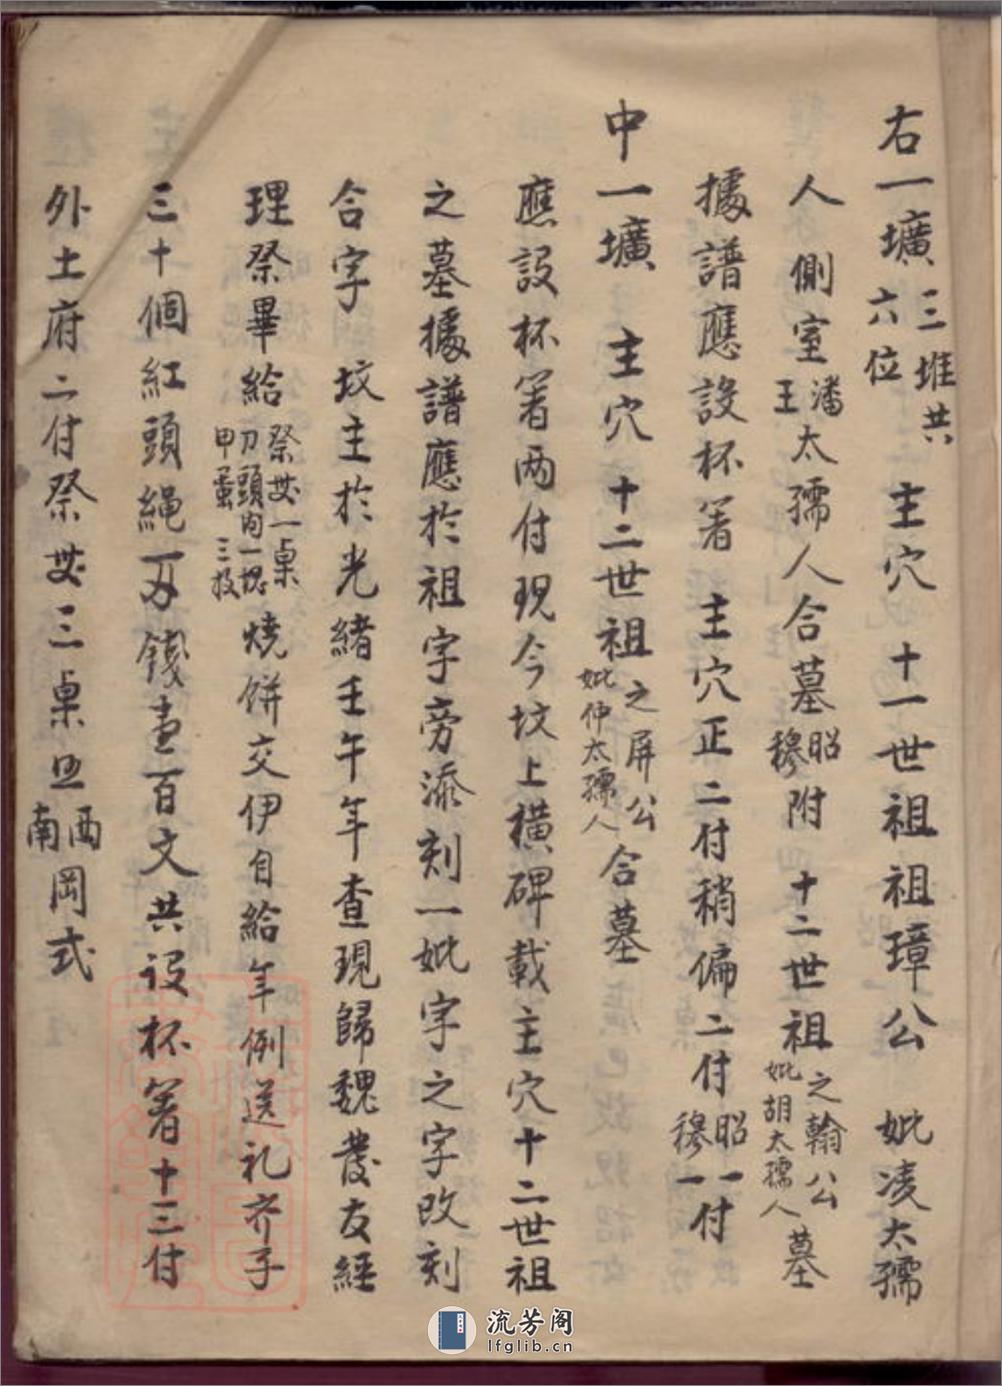 右一壙三堆共六位　主穴　十一世祖祖璋公　妣凌太孺
人　側室潘王太孺人合墓昭穆附十二世祖之翰公妣胡太孺人墓
據譜應設杯箸　主穴正二付稍偏二付昭穆一一付
中一壙　主穴十二世祖之屏公妣仲太孺人合墓
應設杯箸两付現今坟上橫碑載主穴十二世祖
之墓據譜應於祖字旁添刻一妣字之字改刻
合字　坟主於光緒壬午年查現歸魏發友經
理祭畢給祭䒳一桌刀頭肉一塊甲蛋三枚燒餅交伊自給年例送礼齐子
三十個紅頭繩一刄錢壹百文共设杯箸十三付
外土府二付祭䒳三桌 西南岡式
流芳阁
lfglib.cn